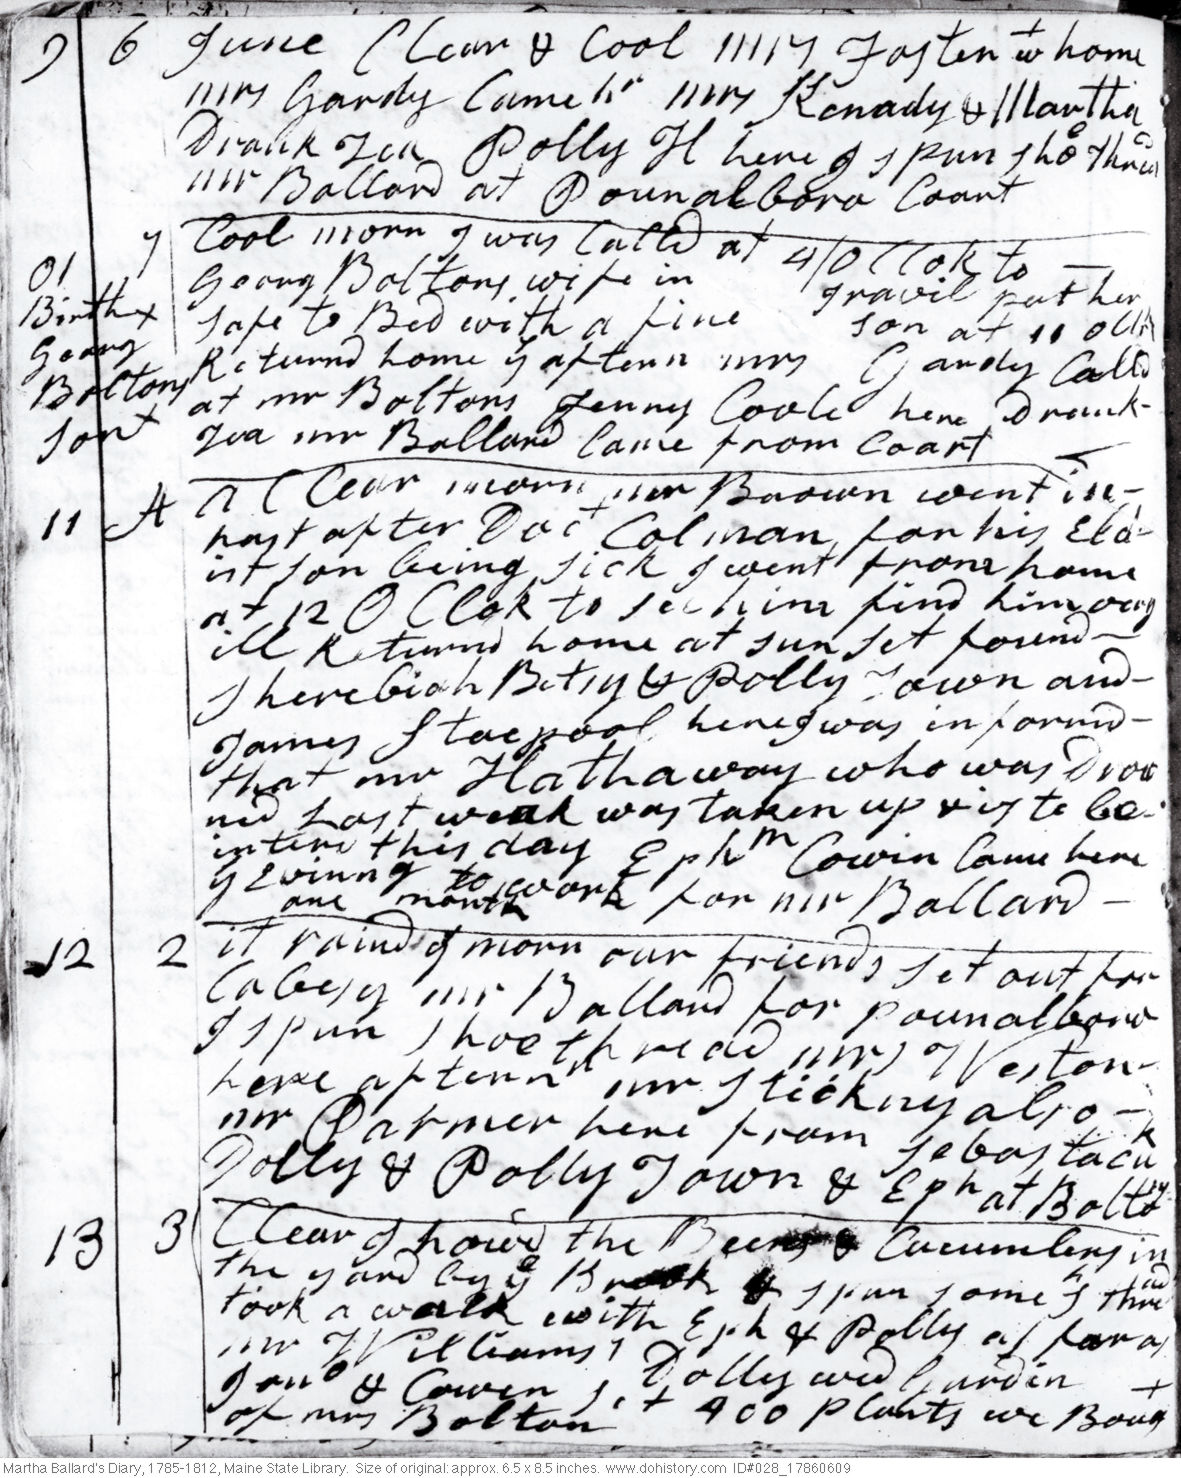 9 6 June Clear & Cool mrs Foster wt home
mrs Gardy Came hr mrs Kenady & Martha
Drank Tea Polly H here I spun shoe thread
mr Ballard at Pounalboro Coart
7 Cool morn I was Calld at 4 O Clok to
01 Birth x Georg Boltons son x
Georg Boltons wife in gravil put her
safe to Bed with a fine son at 11 oClk
Returnd home ys aftern mrs Gardy Calld
at mr Boltons Jenny Coole here Drank
Tea mr Ballard Came from Coart
11 A a Clear morn mr Brown went in
hast after Doct Colman for his Eld
ist son being sick I went from home
at 12 O Clok to see him find him very
ill Returnd home at sun set found
Sherebiah Betsy & Polly Town and
James Stacpool here I was informd
that mr Hathaway who was Drow
ned Last weak was taken up & is to be
interd this day Ephm Cowin Came here
ys Evinng to work for mr Ballard
one month
12 2 it raind ys morn our friends set out for
Cabesy mr Ballard for Pounalboro
I spun shoe thread mrs Weston
here afternn mr Stickny also
mr Parmer here from Sebastacuk
Dolly & Polly Town & Eph at Boltons
13 3 Clear I howd the Beens & Cucumbers in
the yard by ye Brook & spun some sh thread
took a walk with Eph & Polly as far as
mr Williams's Dolly wed Gardin
Jono & Cowen set 400 Plants we Boug
of mrs Bolton
Martha Ballard's Diary, 1785-1812, Maine State Library. Size of original: approx. 6.5 x 8.5 inches. www.dohistory.com ID#028_17860609